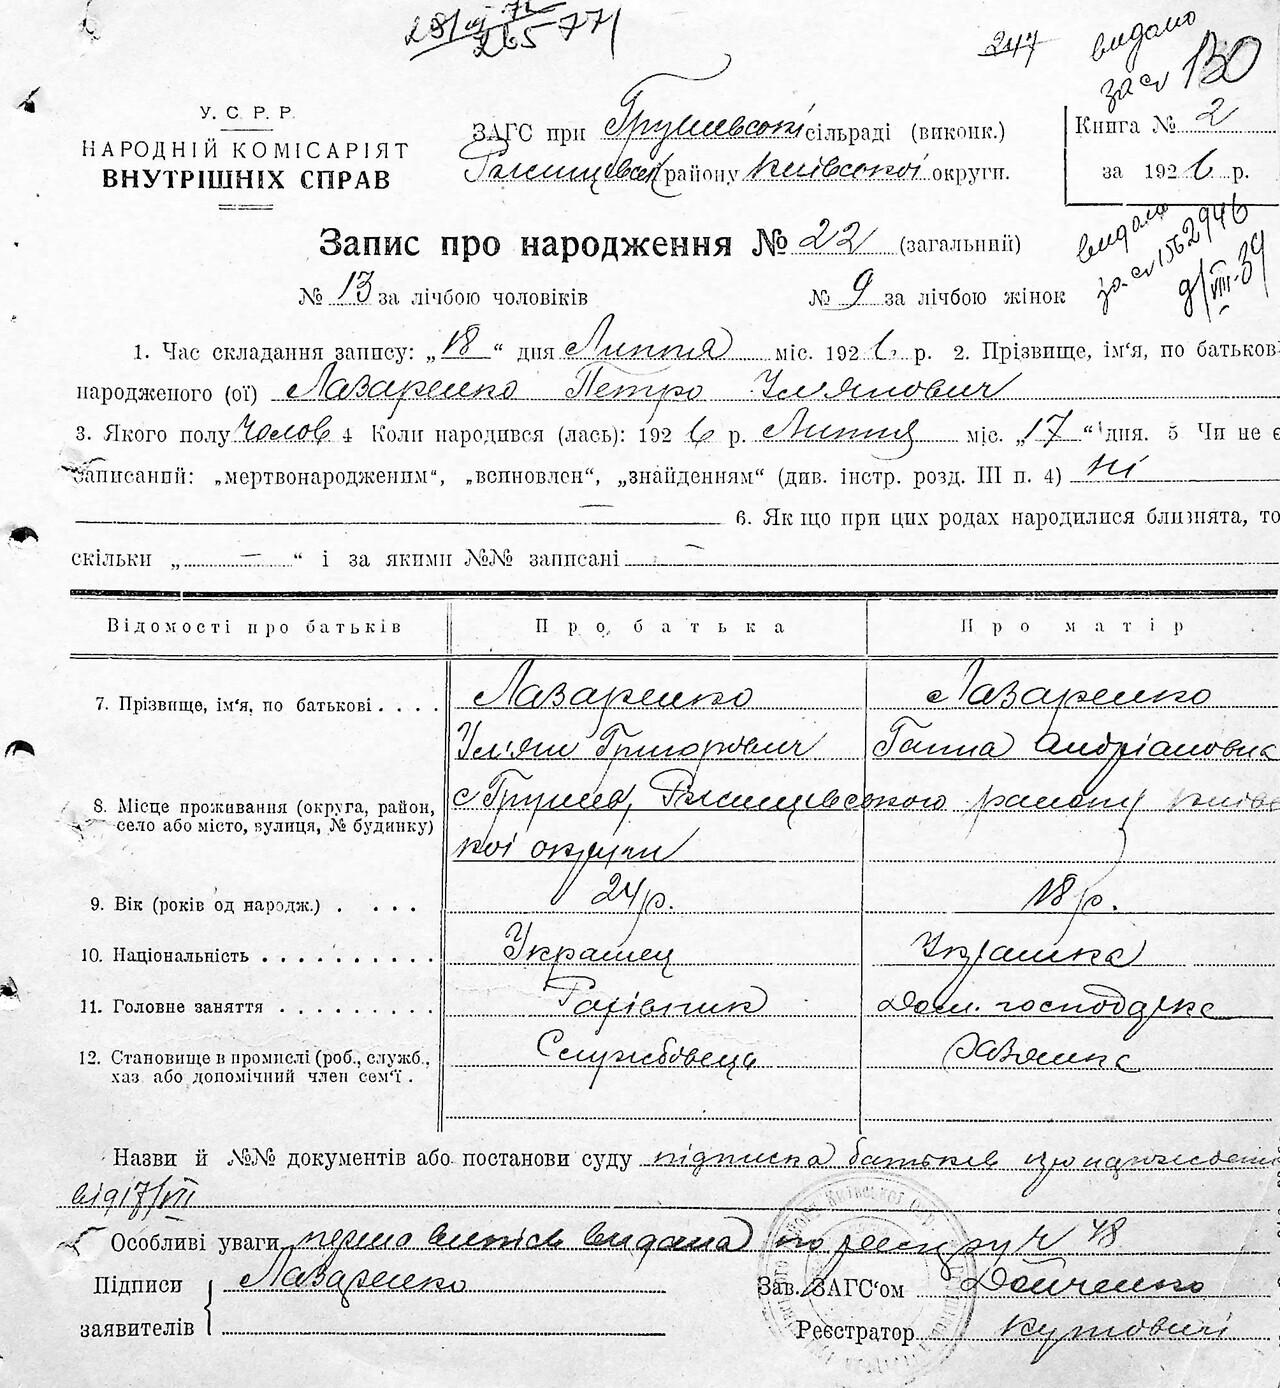 247
видано
за сv 130
У. С. Р. Р.
НАРОДНІЙ КОМІСАРІЯТ
ВНУТРІШНІХ СПРАВ
ЗАГС при Грушевській сільраді (виконк.)
Ржищевськ району Київської округи.
Книга № 2
за 1926 р.
видано
Запис про народження № 22 (загальний)
№ 13 за лічбою чоловіків № 9 за лічбою жінок
1. Час складання запису: „18“ дня Липня міс. 1926 р. 2. Прізвище, ім'я, по батькові
народженого (ої) Лазаренко Петро Улянович
3. Якого полу чолов 4 Коли народився (лась): 1926 р. Липня міс. „17“ дня. 5 Чи не є
записаний: „мертвонародженим“, „всиновлен“, „знайденням“ (див. інстр. розд. III п. 4) ні
6. Якщо при цих родах народилися близнята, то
скільки „ — “ і за якими №№ записані —
Відомості про батьків Про батька Про матір
7. Прізвище, ім‘я, по батькові . . . . Лазаренко Лазаренко
Ул'ян Григорович Ганна Андріановна
8. Місце проживання (округа, район, с Грушев, Ржищевського району Київс
село або місто, вулиця, № будинку)
кої округи
9. Вік (років од народж.) . . . . 24 р. 18 р.
10. Національність . . . . . . . . . . Українец Українка
11. Головне заняття . . . . . . . . . Дом. господарка
12. Становище в промислі (роб., служб., Службовець Хазяйка
хаз або допомічний член сем‘ї .
Назви й №№ документів або постанови суду підписка батьків
від 17/VII
Особливі уваги перша випись видана по реєстру № 48
Підписи Лазаренко Зав. ЗАГС‘ом Дейченко
заявителів Реєстратор